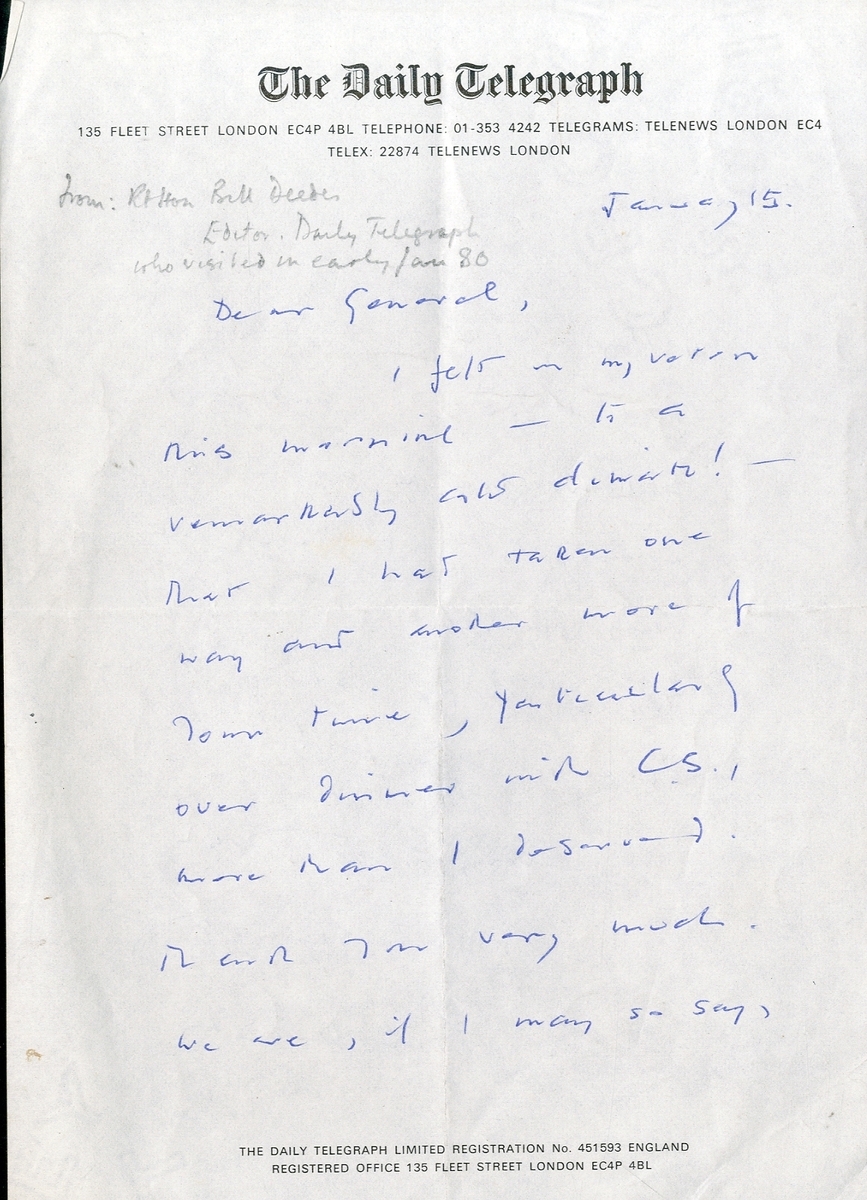 The Daily Telegraph
135 FLEET STREET LONDON EC4P 4BL TELEPHONE: 01-353 4242 TELEGRAMS: TELENEWS LONDON EC4
TELEX: 22874 TELENEWS LONDON
from: Rt Hon Bill Deedes
January 15.
Editor. Daily Telegraph
who visited in early Jan 80
Dear General,
I felt on my return
this morning — to a
remarkably cold climate! —
that I had taken one
way and another more of
your time, particularly
over dinner with CS.,
more than I deserved.
Thank you very much.
We are, if I may so say,
THE DAILY TELEGRAPH LIMITED REGISTRATION No. 451593 ENGLAND
REGISTERED OFFICE 135 FLEET STREET LONDON EC4P 4BL